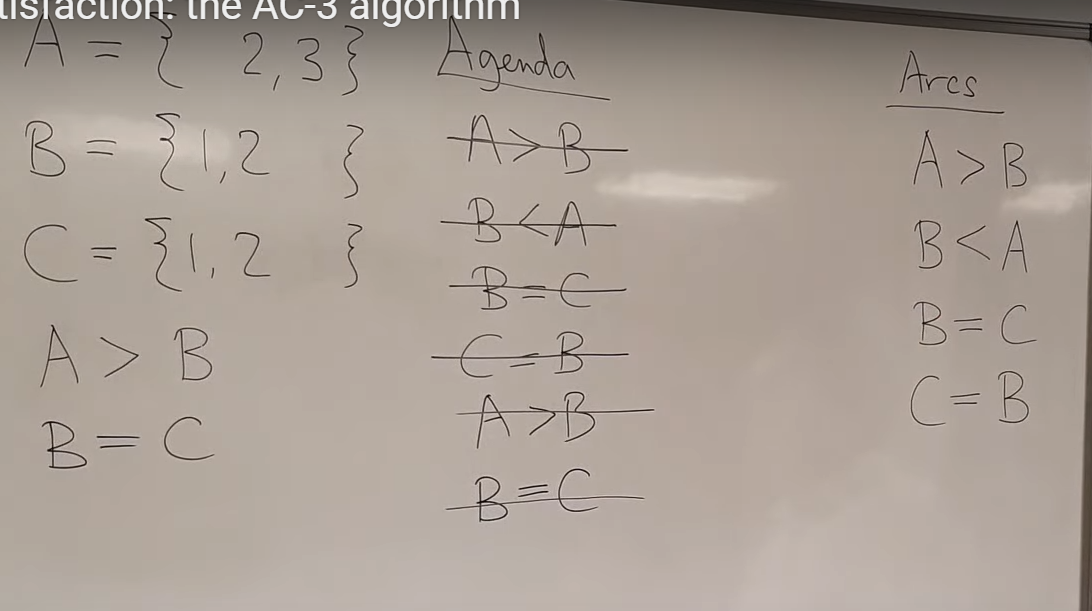 tisfaction: the AC-3 algorithm
A = { 2, 3 }
B = { 1, 2 }
C = { 1, 2 }
A > B
B = C
Agenda
A > B
B < A
B = C
C = B
A > B
B = C
Arcs
A > B
B < A
B = C
C = B